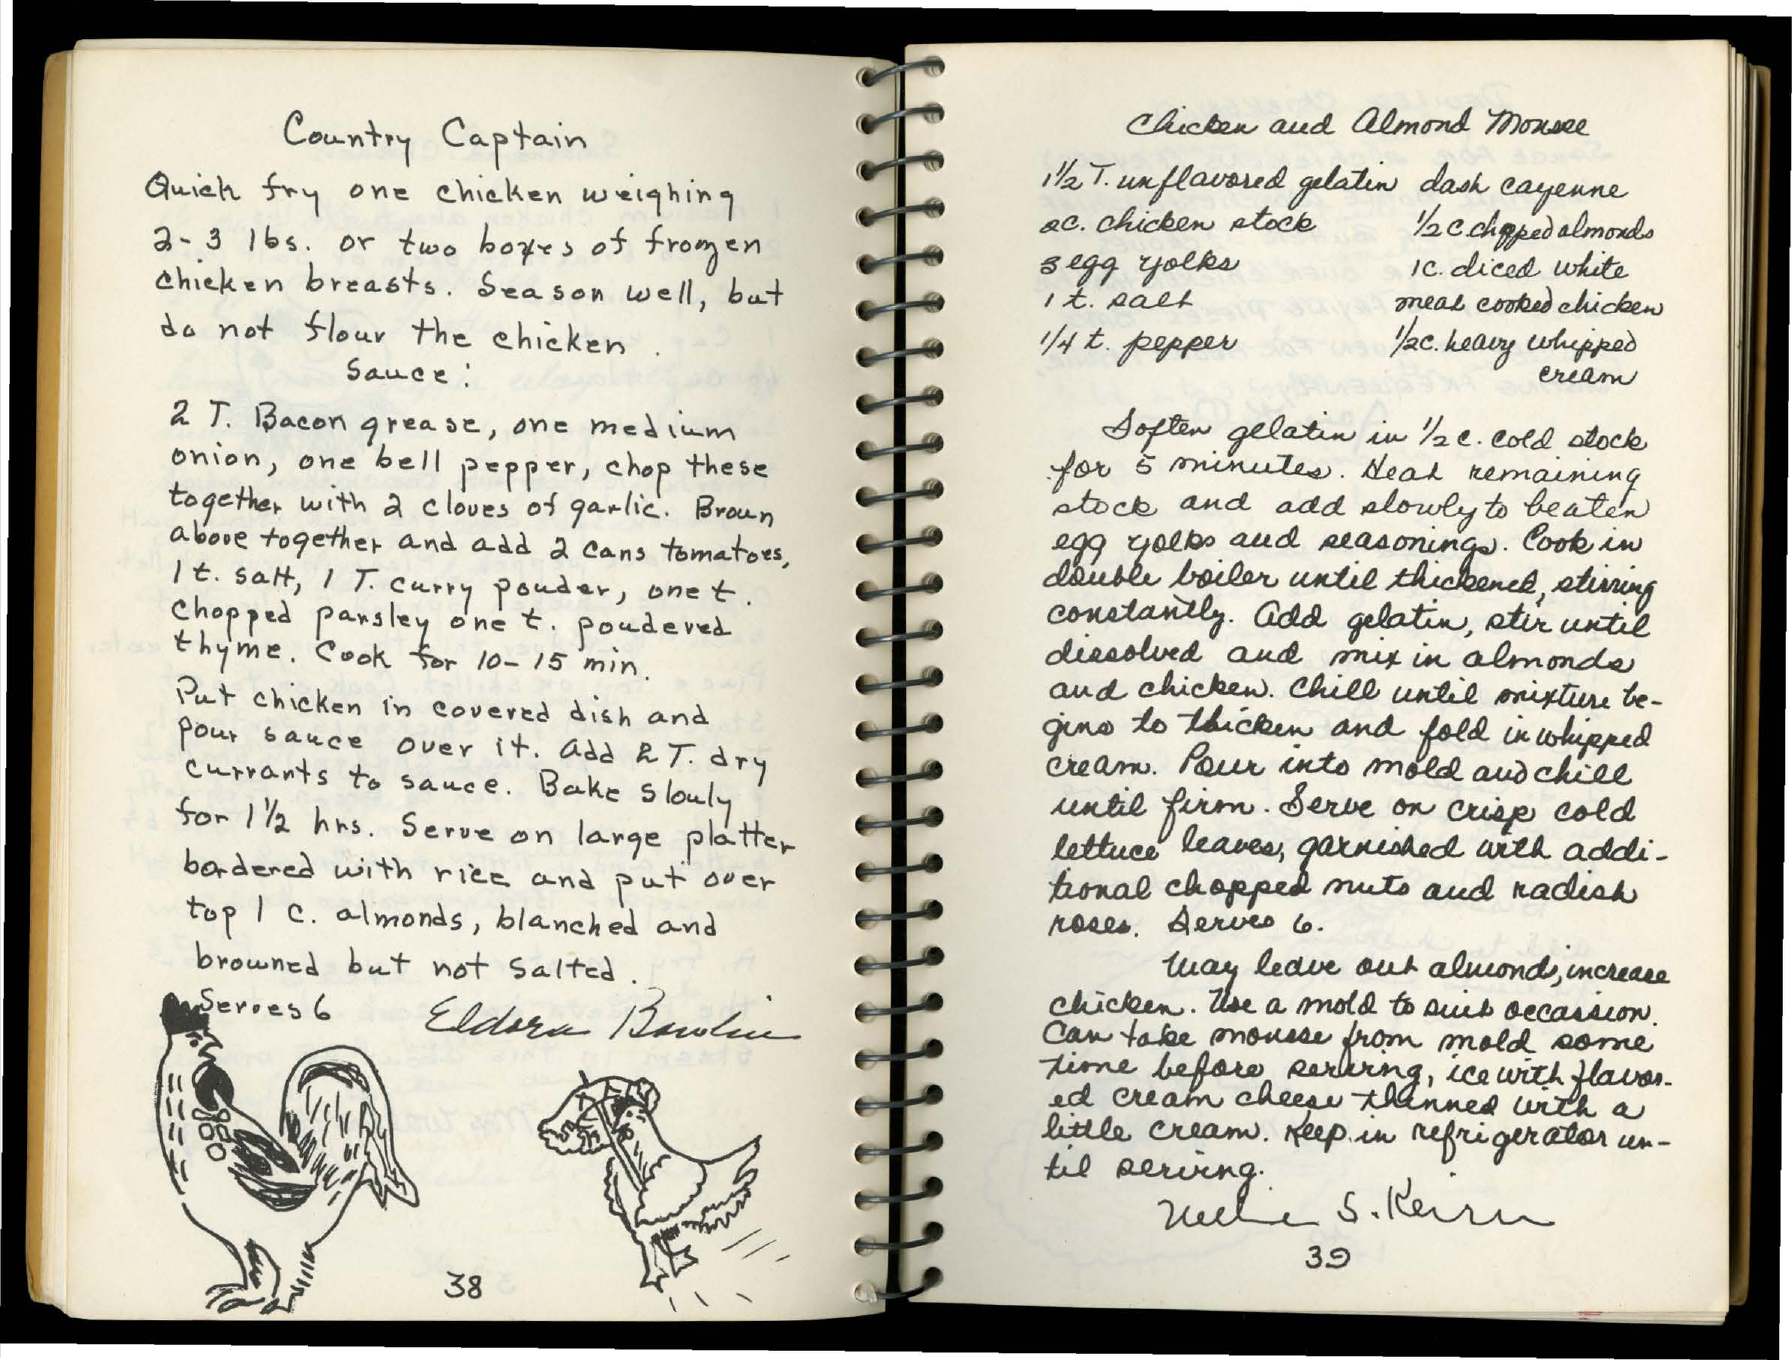 Country Captain
Quick fry one chicken weighing
2-3 lbs. or two boxes of frozen
chicken breasts. Season well, but
do not flour the chicken.
Sauce:
2 T. Bacon grease, one medium
onion, one bell pepper, chop these
together with 2 cloves of garlic. Brown
above together and add 2 cans tomatoes,
1 t. salt, 1 T. curry powder, one t.
chopped parsley one t. powdered
thyme. Cook for 10-15 min.
Put chicken in covered dish and
pour sauce over it. Add 2 T. dry
currants to sauce. Bake slowly
for 1½ hrs. Serve on large platter
bordered with rice and put over
top 1 c. almonds, blanched and
browned but not salted.
Serves 6
Eldora
38
Chicken and Almond Mousse
1½ T. unflavored gelatin dash cayenne
2c. chicken stock ½ c chopped almonds
3 egg yolks 1c. diced white
1 t. salt meat cooked chicken
1/4 t. pepper ½c. heavy whipped
cream
Soften gelatin in ½ c. cold stock
for 5 minutes. Heat remaining
stock and add slowly to beaten
egg yolks and seasonings. Cook in
double boiler until thickened, stirring
constantly. Add gelatin, stir until
dissolved and mix in almonds
and chicken. Chill until mixture be-
gins to thicken and fold in whipped
cream. Pour into mold and chill
until firm. Serve on crisp cold
lettuce leaves, garnished with addi-
tional chopped nuts and radish
roses. Serves 6.
May leave out almonds, increase
chicken. Use a mold to suit occassion.
Can take mousse from mold some
time before serving, ice with flavor-
ed cream cheese thinned with a
little cream. Keep in refrigerator un-
til serving.
S.
39